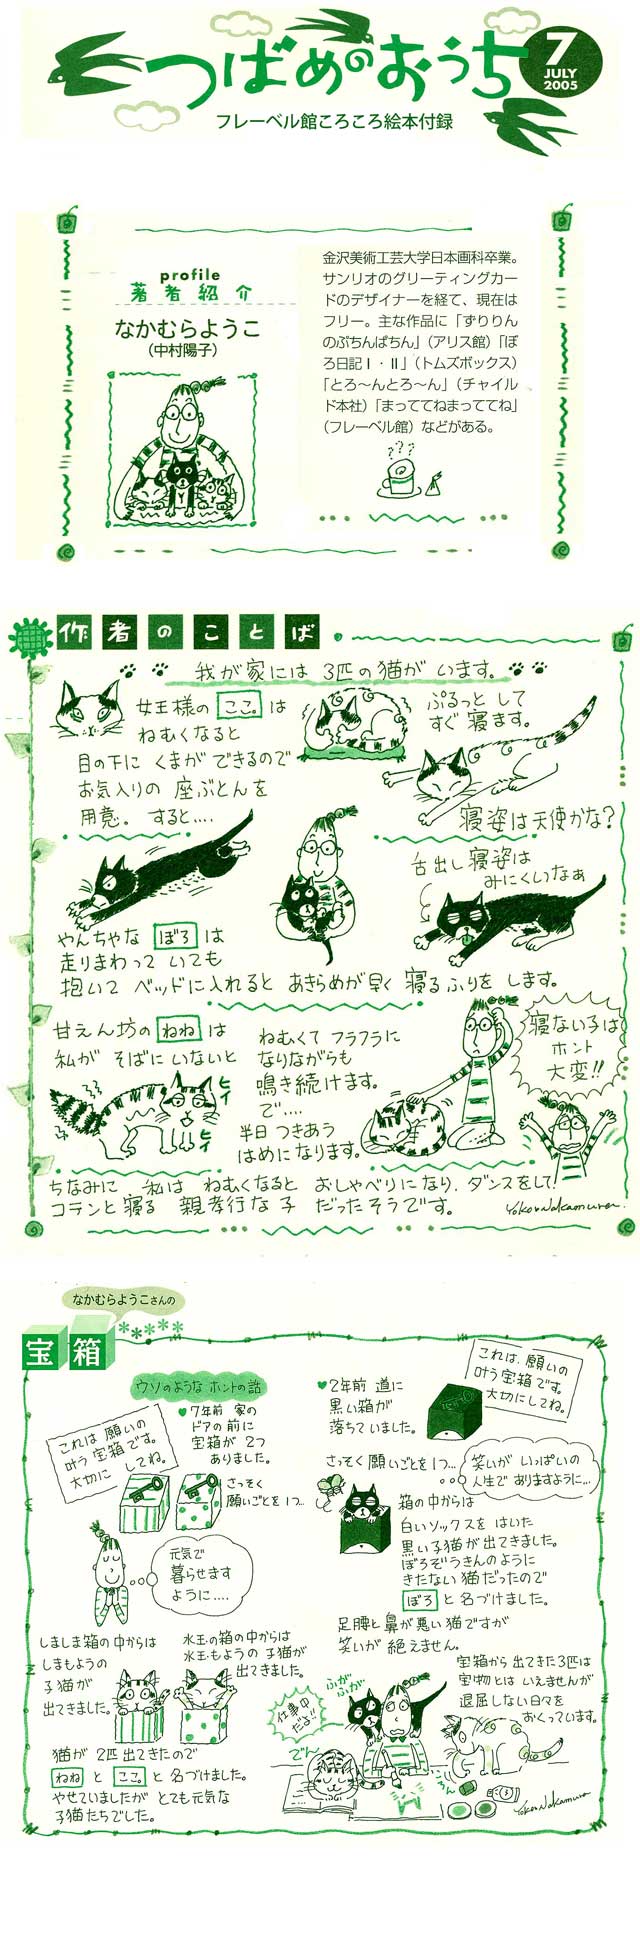 つばめのおうち
7
JULY
2005
フレーベル館ころころ絵本付録
profile
著者紹介
なかむらようこ
(中村陽子)
金沢美術工芸大学日本画科卒業。
サンリオのグリーティングカー
ドのデザイナーを経て、現在は
フリー。主な作品に「ずりりん
のぷちんぱちん」(アリス館)「ぼ
ろ日記Ⅰ・Ⅱ」(トムズボックス)
「とろ〜んとろ〜ん」(チャイル
ド本社)「まっててねまっててね」
(フレーベル館)などがある。
作者のことば
我が家には 3匹の猫が います。
女王様の ここ。は
ねむくなると
目の下に くまが できるので
お気入りの 座ぶとんを
用意。 すると‥‥
ぷるっと して
すぐ 寝ます。
寝姿は天使かな?
やんちゃな ぼろ は
走りまわって いても
抱いて ベッドに入れると あきらめが早く 寝るふりを します。
舌出し寝姿は
みにくいなぁ
甘えん坊の ねね は
私が そばに いないと
ヒイ
ヒイ
ねむくて フラフラに
なりながらも
鳴き続けます。
で‥‥
半日 つきあう
はめになります。
寝ない子は
ホント
大変!!
ちなみに 私は ねむくなると おしゃべりになり、ダンスをして!
コテンと寝る 親孝行な子 だったそうです。
Yoko Nakamura.
なかむらようこさんの
宝箱
ウソのような ホントの話
これは 願いの
叶う 宝箱です。
大切に してね。
♥7年前 家の
ドアの前に
宝箱が 2つ
ありました。
さっそく
願いごとを 1つ…
元気で
暮らせます
ように‥‥
しましま箱の中からは
しまもようの
子猫が
出てきました。
水玉の箱の中からは
水玉もようの 子猫が
出てきました。
猫が 2匹 出てきたので
ねね と ここ。と 名づけました。
やせていましたが とても元気な
子猫たちでした。
♥2年前 道に
黒い箱が
落ちて いました。
これは、願いの
叶う宝箱です。
大切にしてね。
さっそく 願いごとを 1つ…
笑いが いっぱいの
人生で ありますように…
箱の中からは
白いソックスを はいた
黒い子猫が 出てきました。
ぼろぞうきんのように
きたない猫だったので
ぼろ と 名づけました。
足腰と鼻が悪い猫ですが
笑いが 絶えません。
宝箱から 出てきた3匹は
宝物とは いえませんが
退屈しない日々を
おくっています。
仕事中
だよ!!
ふが
ふが
でん
ごろん
Yoko Nakamura